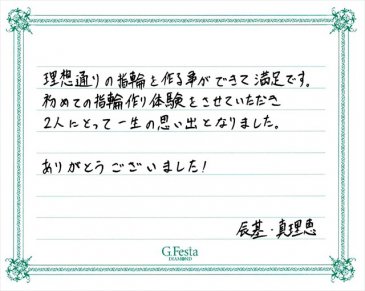 理想通りの指輪を作る事ができて満足です。
初めての指輪作り体験をさせていただき
2人にとって一生の思い出となりました。
ありがとうございました!
辰基・真理恵
G.Festa
DIAMOND